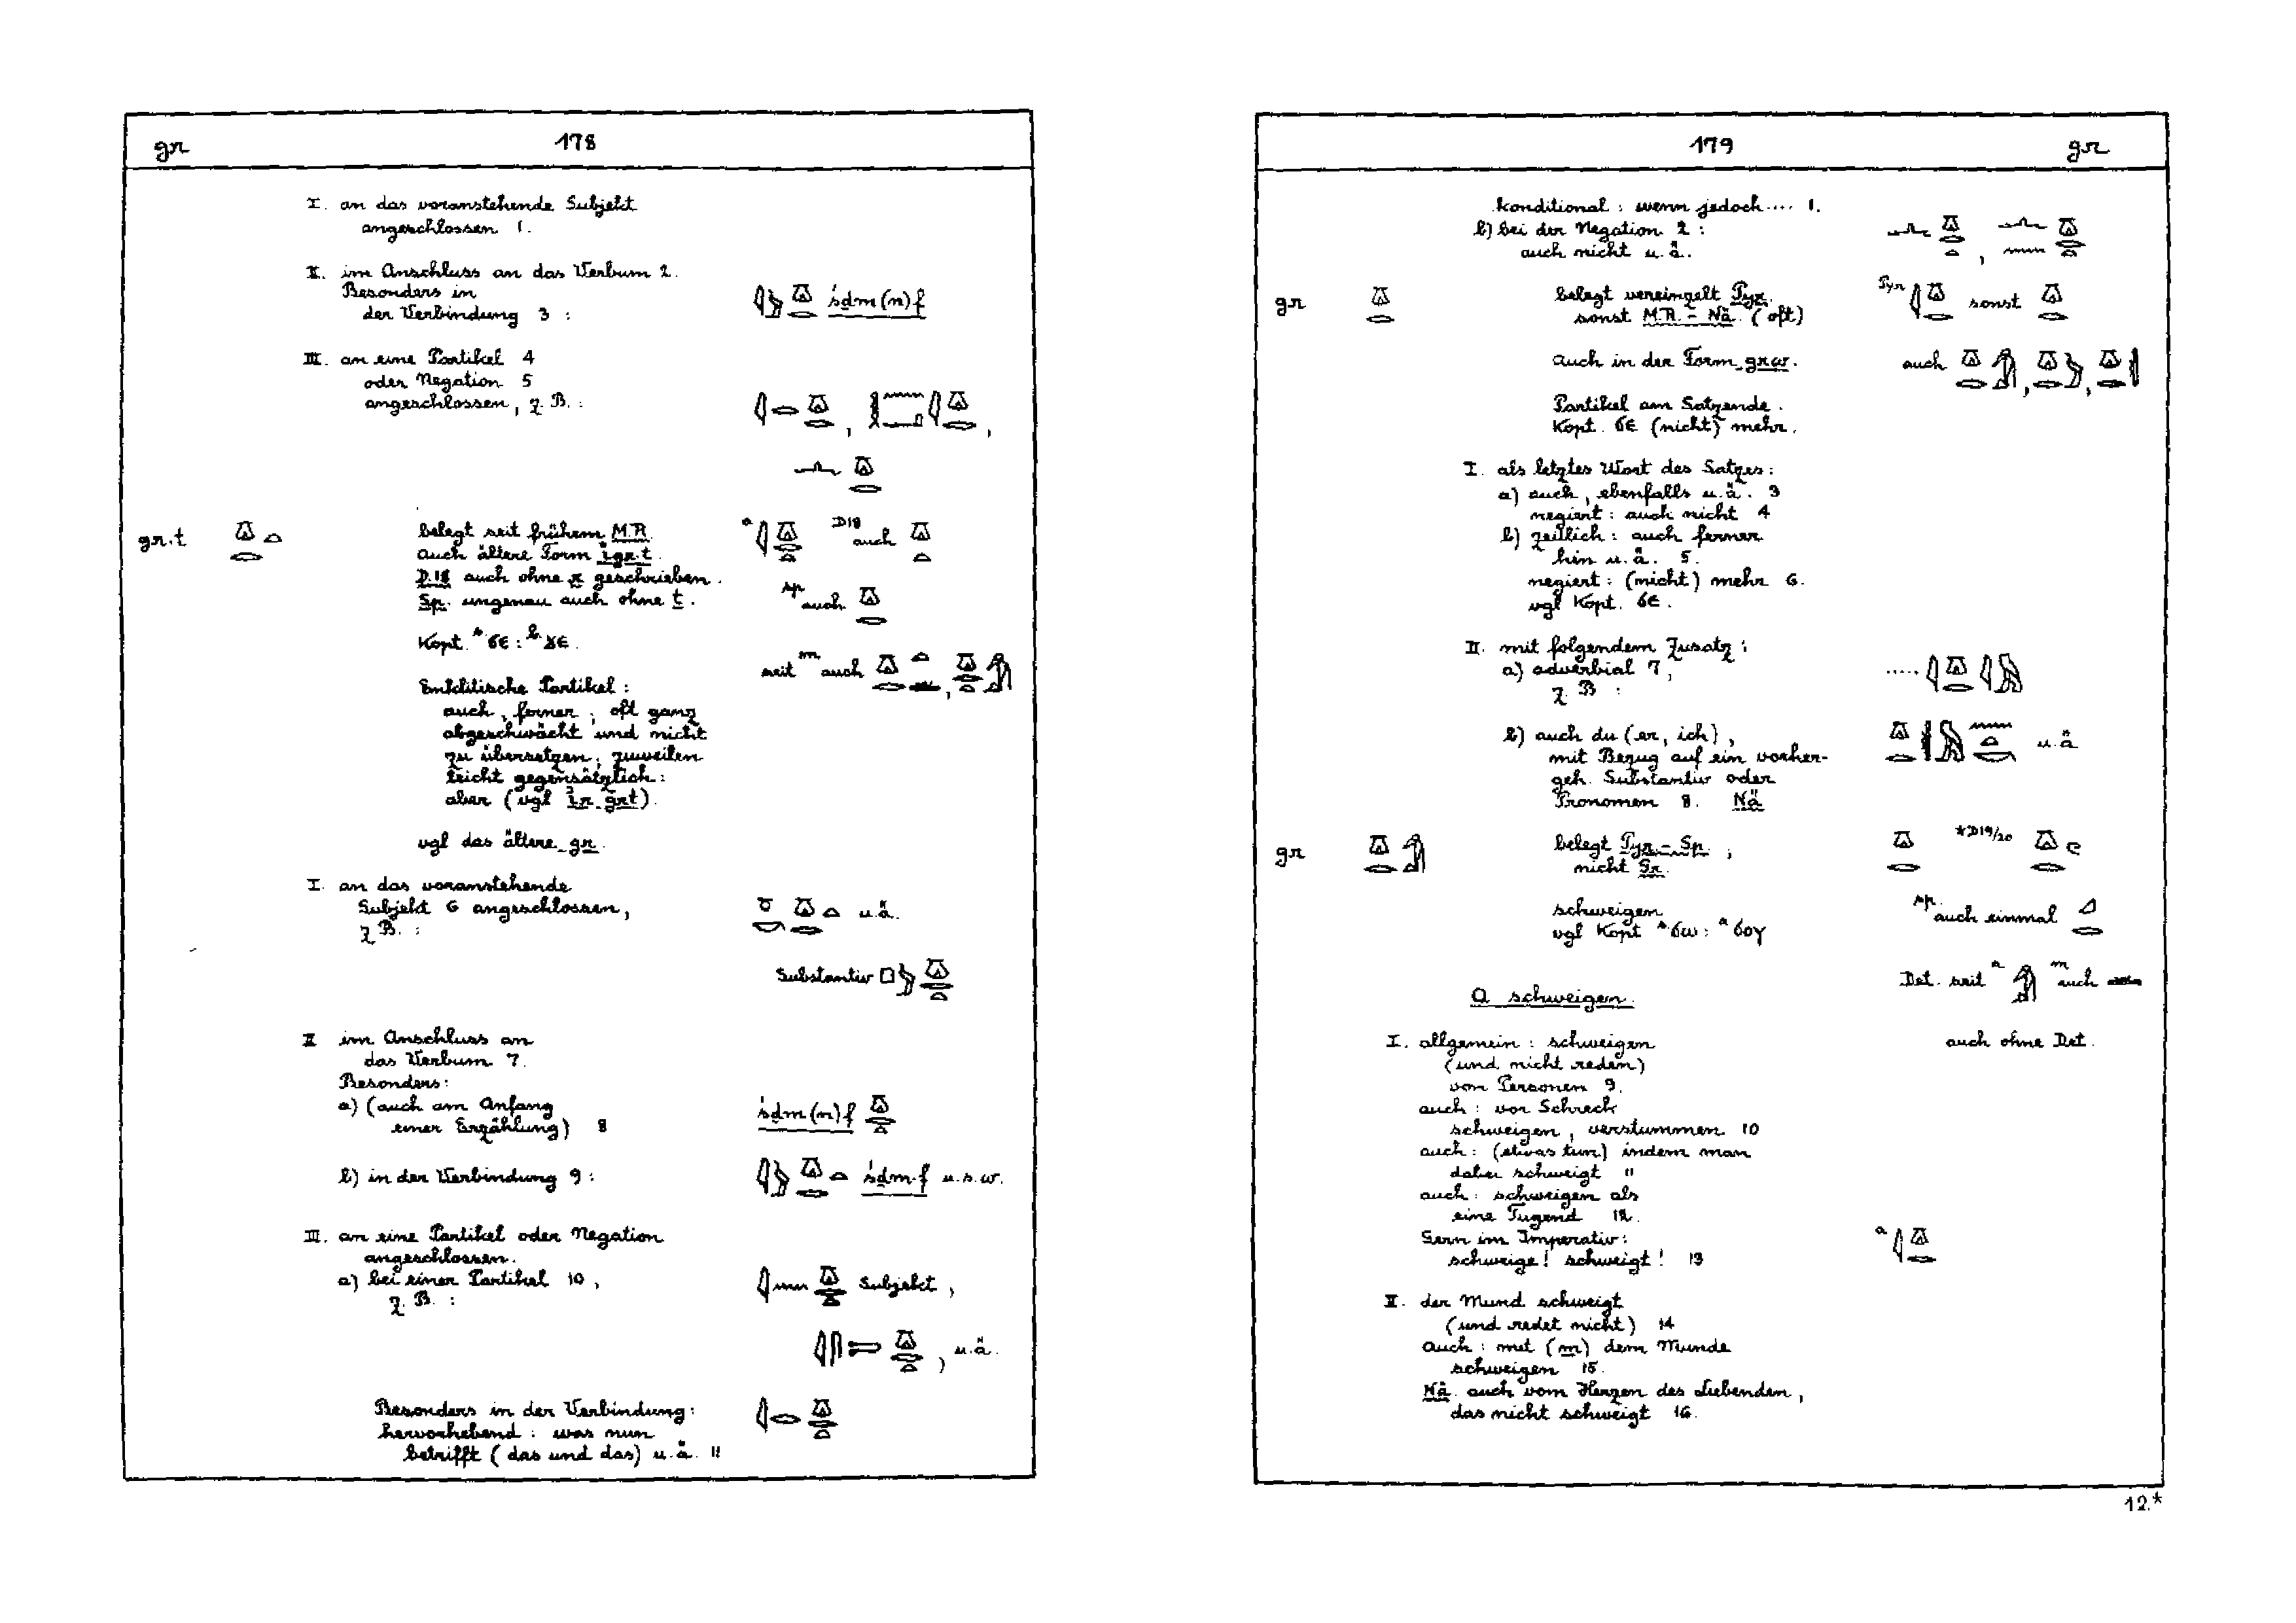 gr 178
I. an das voranstehende Subjekt
angeschlossen 1.
II. im Anschluss an das Verbum 2.
Besonders in
der Verbindung 3 : śdm(n)f
III. an eine Partikel 4
oder Negation 5
angeschlossen, z.B. :
gr.t
belegt seit frühem M.R.
auch ältere Form igr.t.
D.18 auch ohne r geschrieben.
Sp. ungenau auch ohne t.
a D18 auch
Sp. auch
Kopt. s. ϭⲉ : b. ϫⲉ.
seit m auch
Enklitische Partikel :
auch, ferner ; oft ganz
abgeschwächt und nicht
zu übersetzen; zuweilen
leicht gegensätzlich :
aber (vgl ir grt).
vgl das ältere gr.
I. an das voranstehende
Subjekt 6 angeschlossen, u.ä.
z.B. :
Substantiv
II im Anschluss an
das Verbum 7.
Besonders :
a) (auch am Anfang śdm(n)f
einer Erzählung) 8
b) in der Verbindung 9 : śdm.f u.s.w.
III. an eine Partikel oder Negation
angeschlossen.
a) bei einer Partikel 10, Subjekt,
z.B. :
u.ä.
Besonders in der Verbindung :
hervorhebend : was nun
betrifft (das und das) u.ä. 11
179 gr
konditional : wenn jedoch .... 1.
b) bei der Negation 2 :
auch nicht u.ä.
gr belegt vereinzelt Pyr. Pyr sonst
sonst M.R. - Nä. (oft)
auch in der Form grw. auch
Partikel am Satzende.
Kopt. ϭⲉ (nicht) mehr.
I. als letztes Wort des Satzes :
a) auch, ebenfalls u.ä. 3
negiert : auch nicht 4
b) zeitlich : auch ferner
hin u.ä. 5.
negiert : (nicht) mehr 6.
vgl Kopt. ϭⲉ.
II. mit folgendem Zusatz :
a) adverbial 7, .....
z.B :
b) auch du (er, ich), u.ä
mit Bezug auf ein vorher-
geh. Substantiv oder
Pronomen 8. Nä
gr belegt Pyr. - Sp. ; *D19/20
nicht Gr.
schweigen Sp. auch einmal
vgl Kopt s. ϭⲱ : a ϭⲟⲩ
Det. seit a m auch
A schweigen.
I. allgemein : schweigen auch ohne Det.
(und nicht reden)
von Personen 9.
auch : vor Schreck
schweigen, verstummen 10
auch : (etwas tun) indem man
dabei schweigt 11
auch : schweigen als
eine Tugend 12.
Gern im Imperativ : a
schweige! schweigt! 13
II. der Mund schweigt
(und redet nicht) 14
Auch : mit (m) dem Munde
schweigen 15.
Nä. auch vom Herzen des Liebenden,
das nicht schweigt 16.
12.*